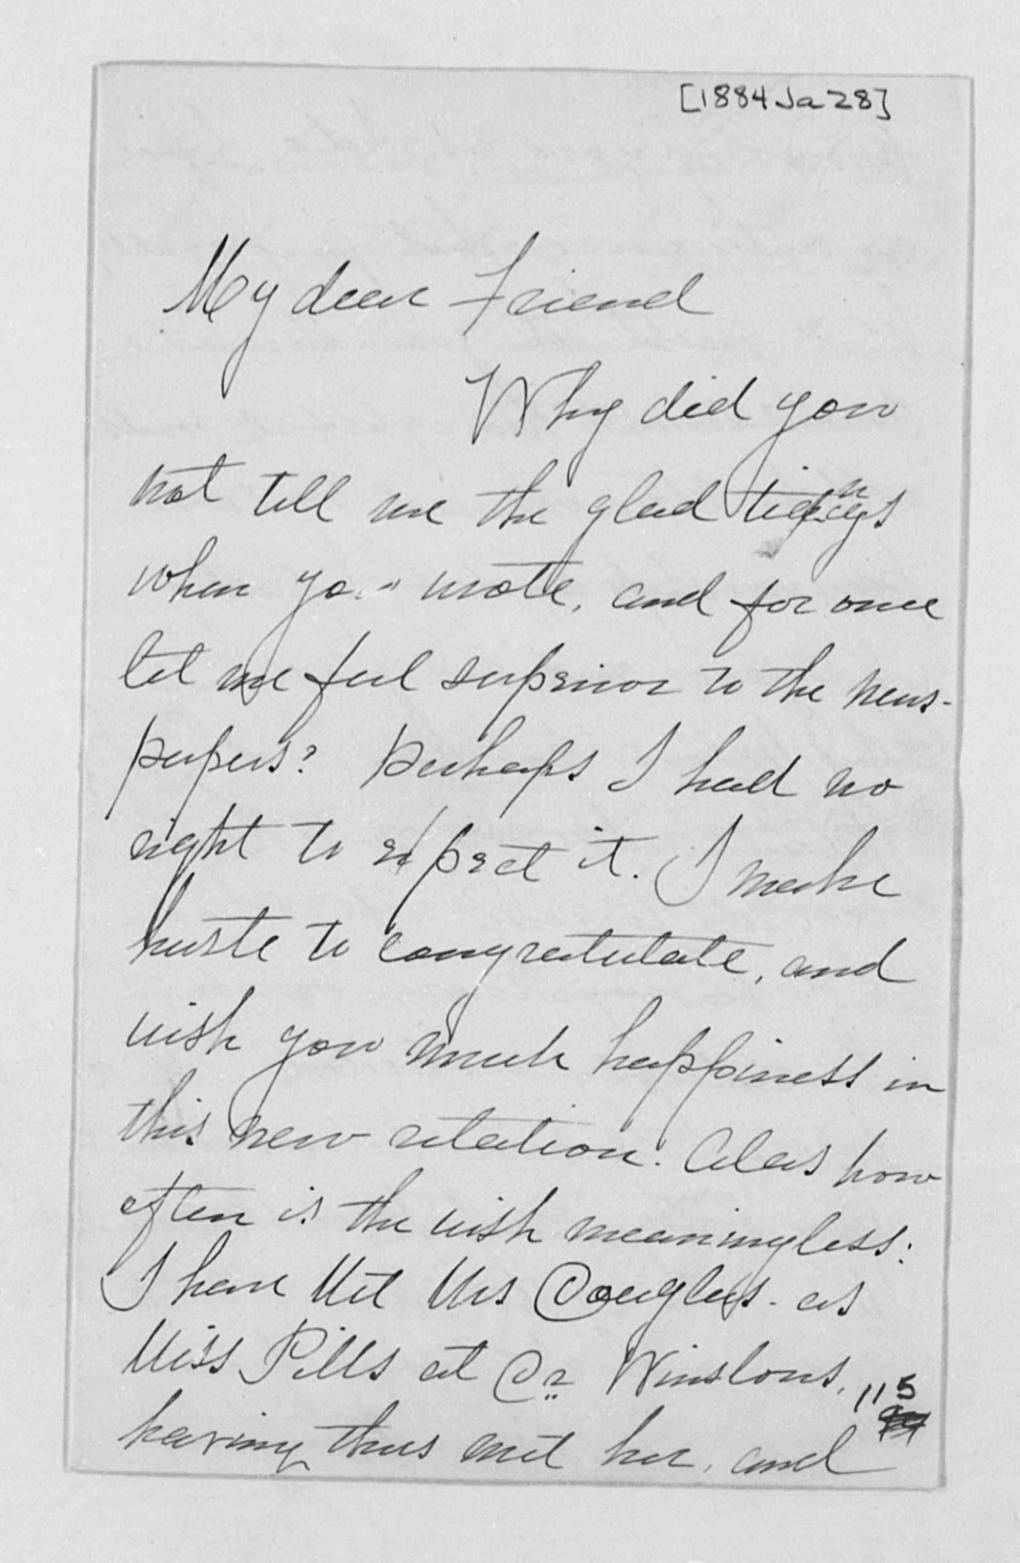 [1884 Ja 28]
My dear Friend
Why did you
not tell me the glad tidings
when you wrote, and for once
let me feel superior to the news-
papers? Perhaps I had no
right to expect it. I make
haste to congratulate, and
wish you much happiness in
this new relation. Alas how
often is the wish meaningless:
I have Met Mrs Douglass. as
Miss Pitts at Dr Winslows,
having thus met her, and
115